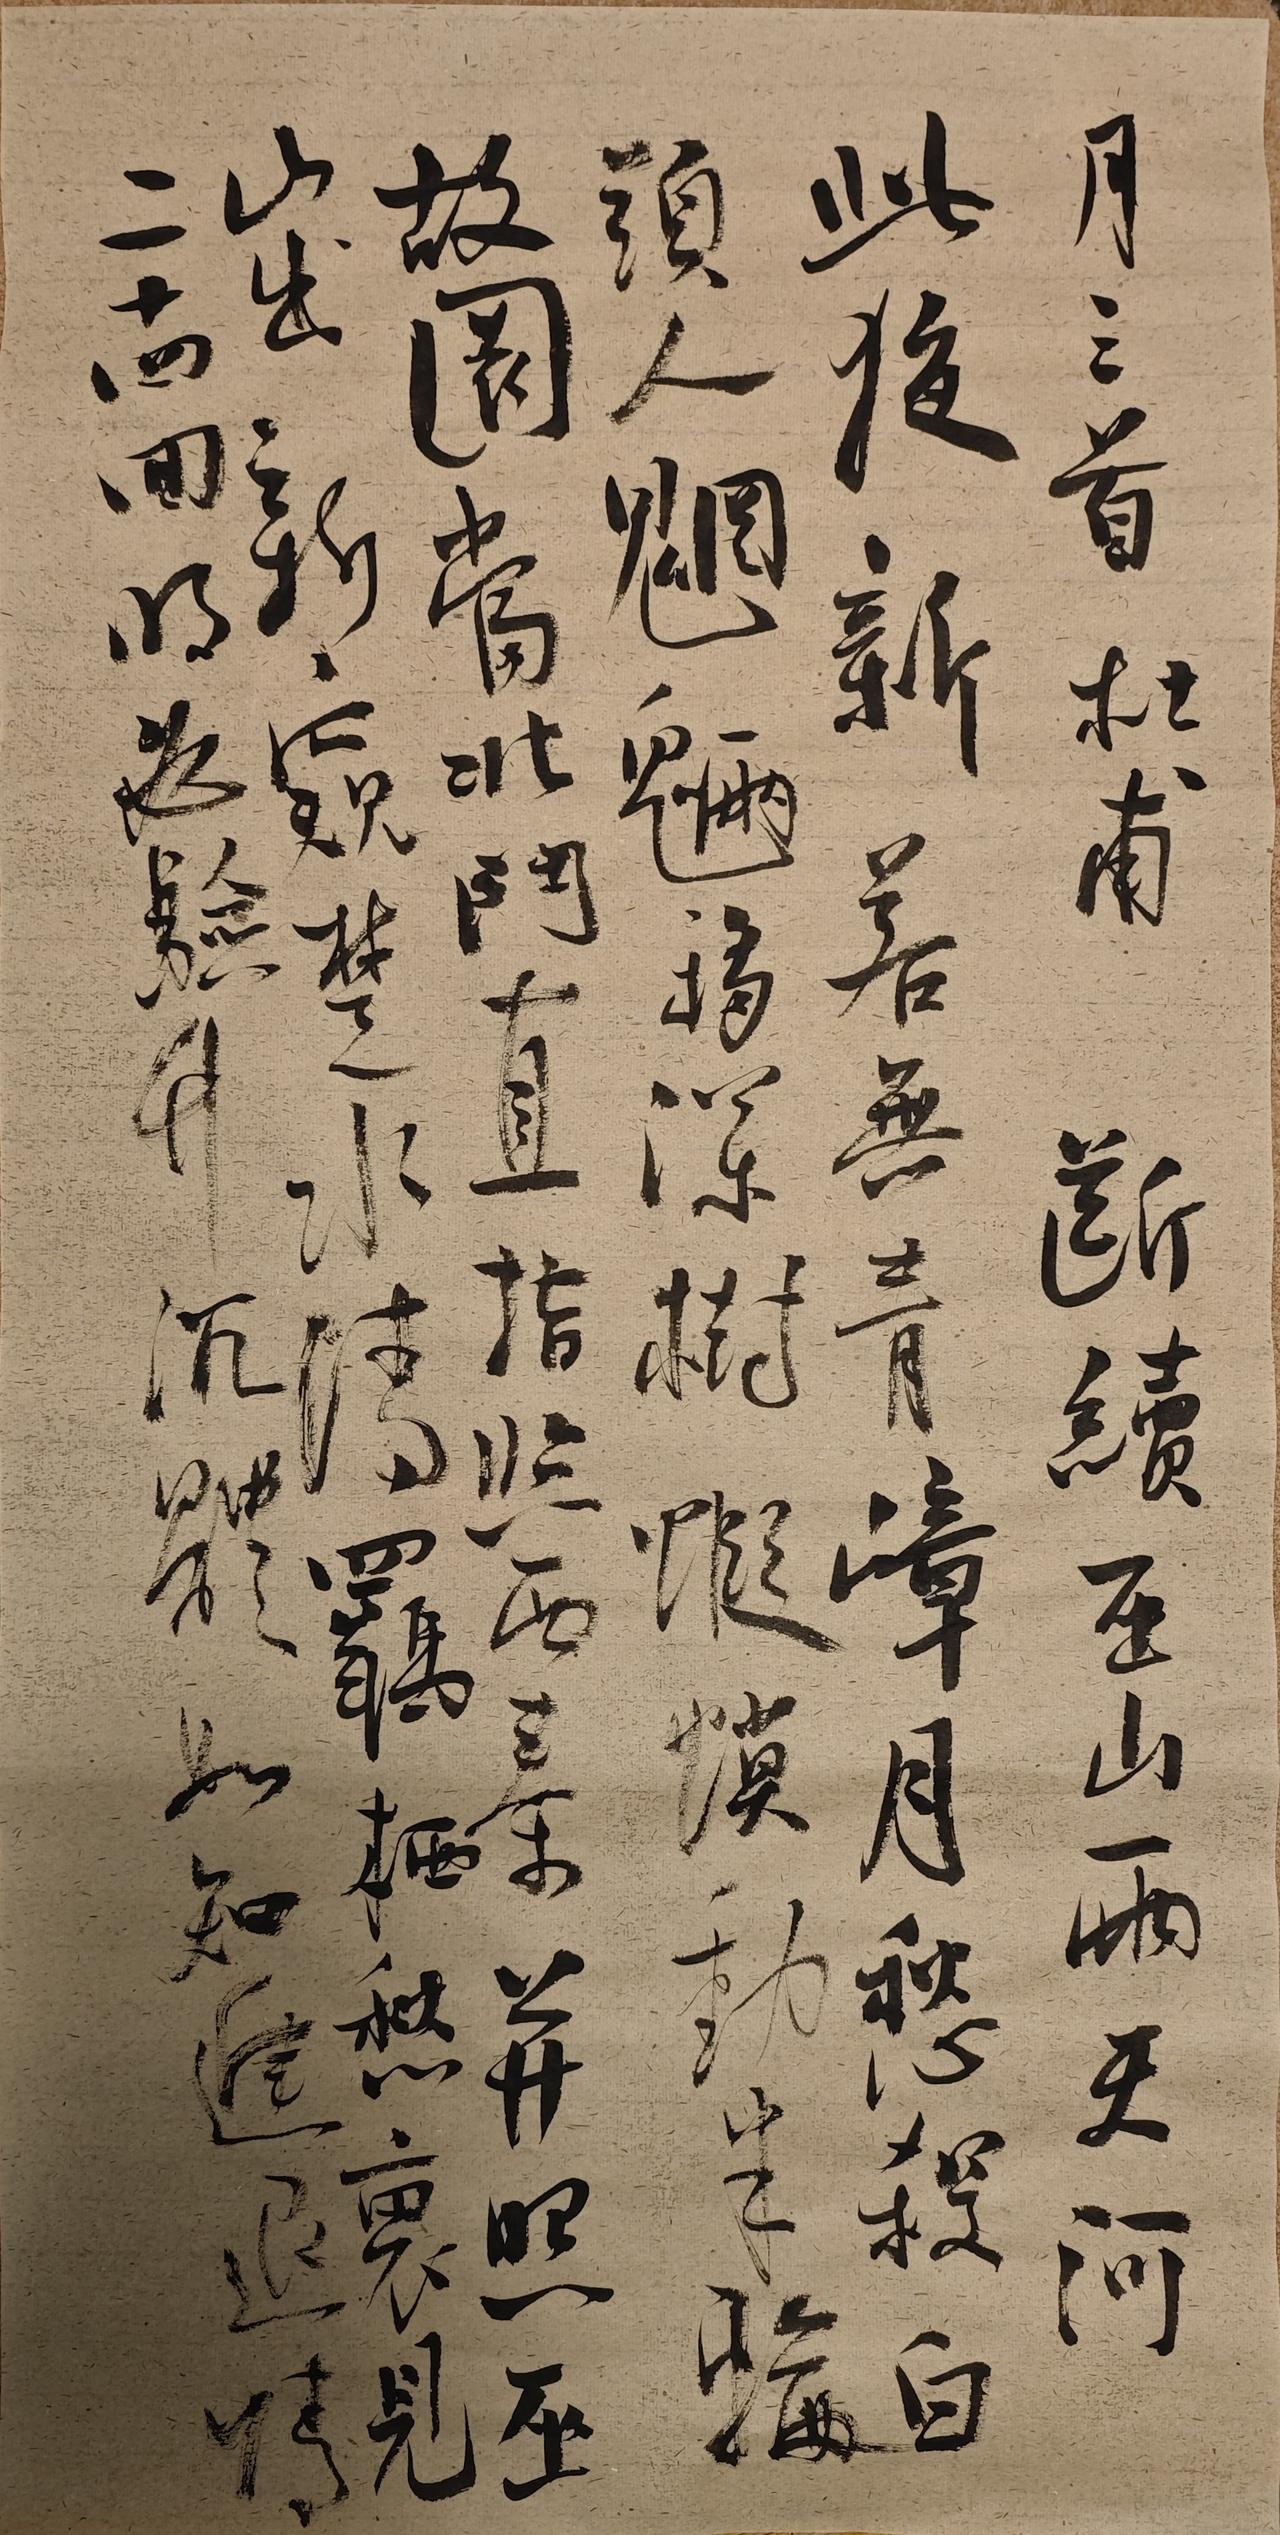 月三首 杜甫 斷續巫山雨天河
此夜新 若無青漳月愁殺白
頭人魍魎移深樹 蝦蟆動半輪
故園當北鬥直指照西秦 并照巫
山出 新窺楚水清 羈栖愁裏見
二十四回明必驗升沉體如知進退情